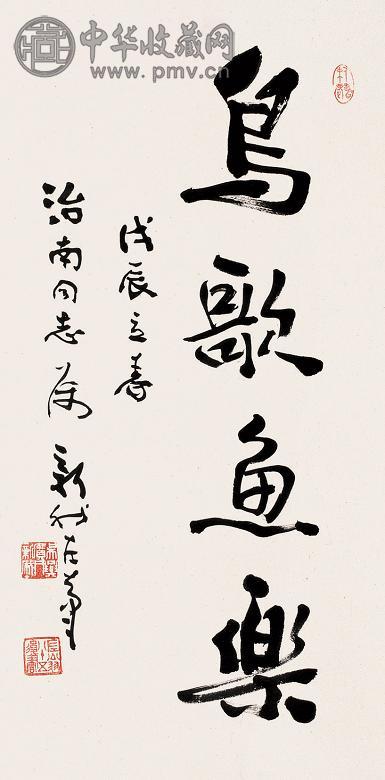 中华收藏网
www.pmv.cn
鸟歌鱼樂
戊辰立春
治南同志属